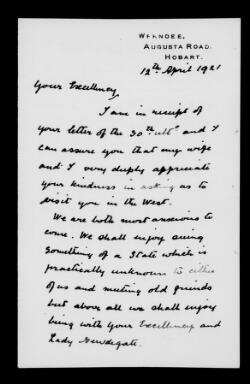 WERNDEE,
AUGUSTA ROAD.
HOBART.
12th April 1921
Your Excellency,
I am in receipt of
your letter of the 30th ult° and I
can assure you that my wife
and I very deeply appreciate
your kindness in asking us to
visit you in the West.
We are both most anxious to
come. We shall enjoy seeing
something of a State which is
practically unknown to either
of us and meeting old friends
but above all we shall enjoy
being with Your Excellency and
Lady Newdegate.